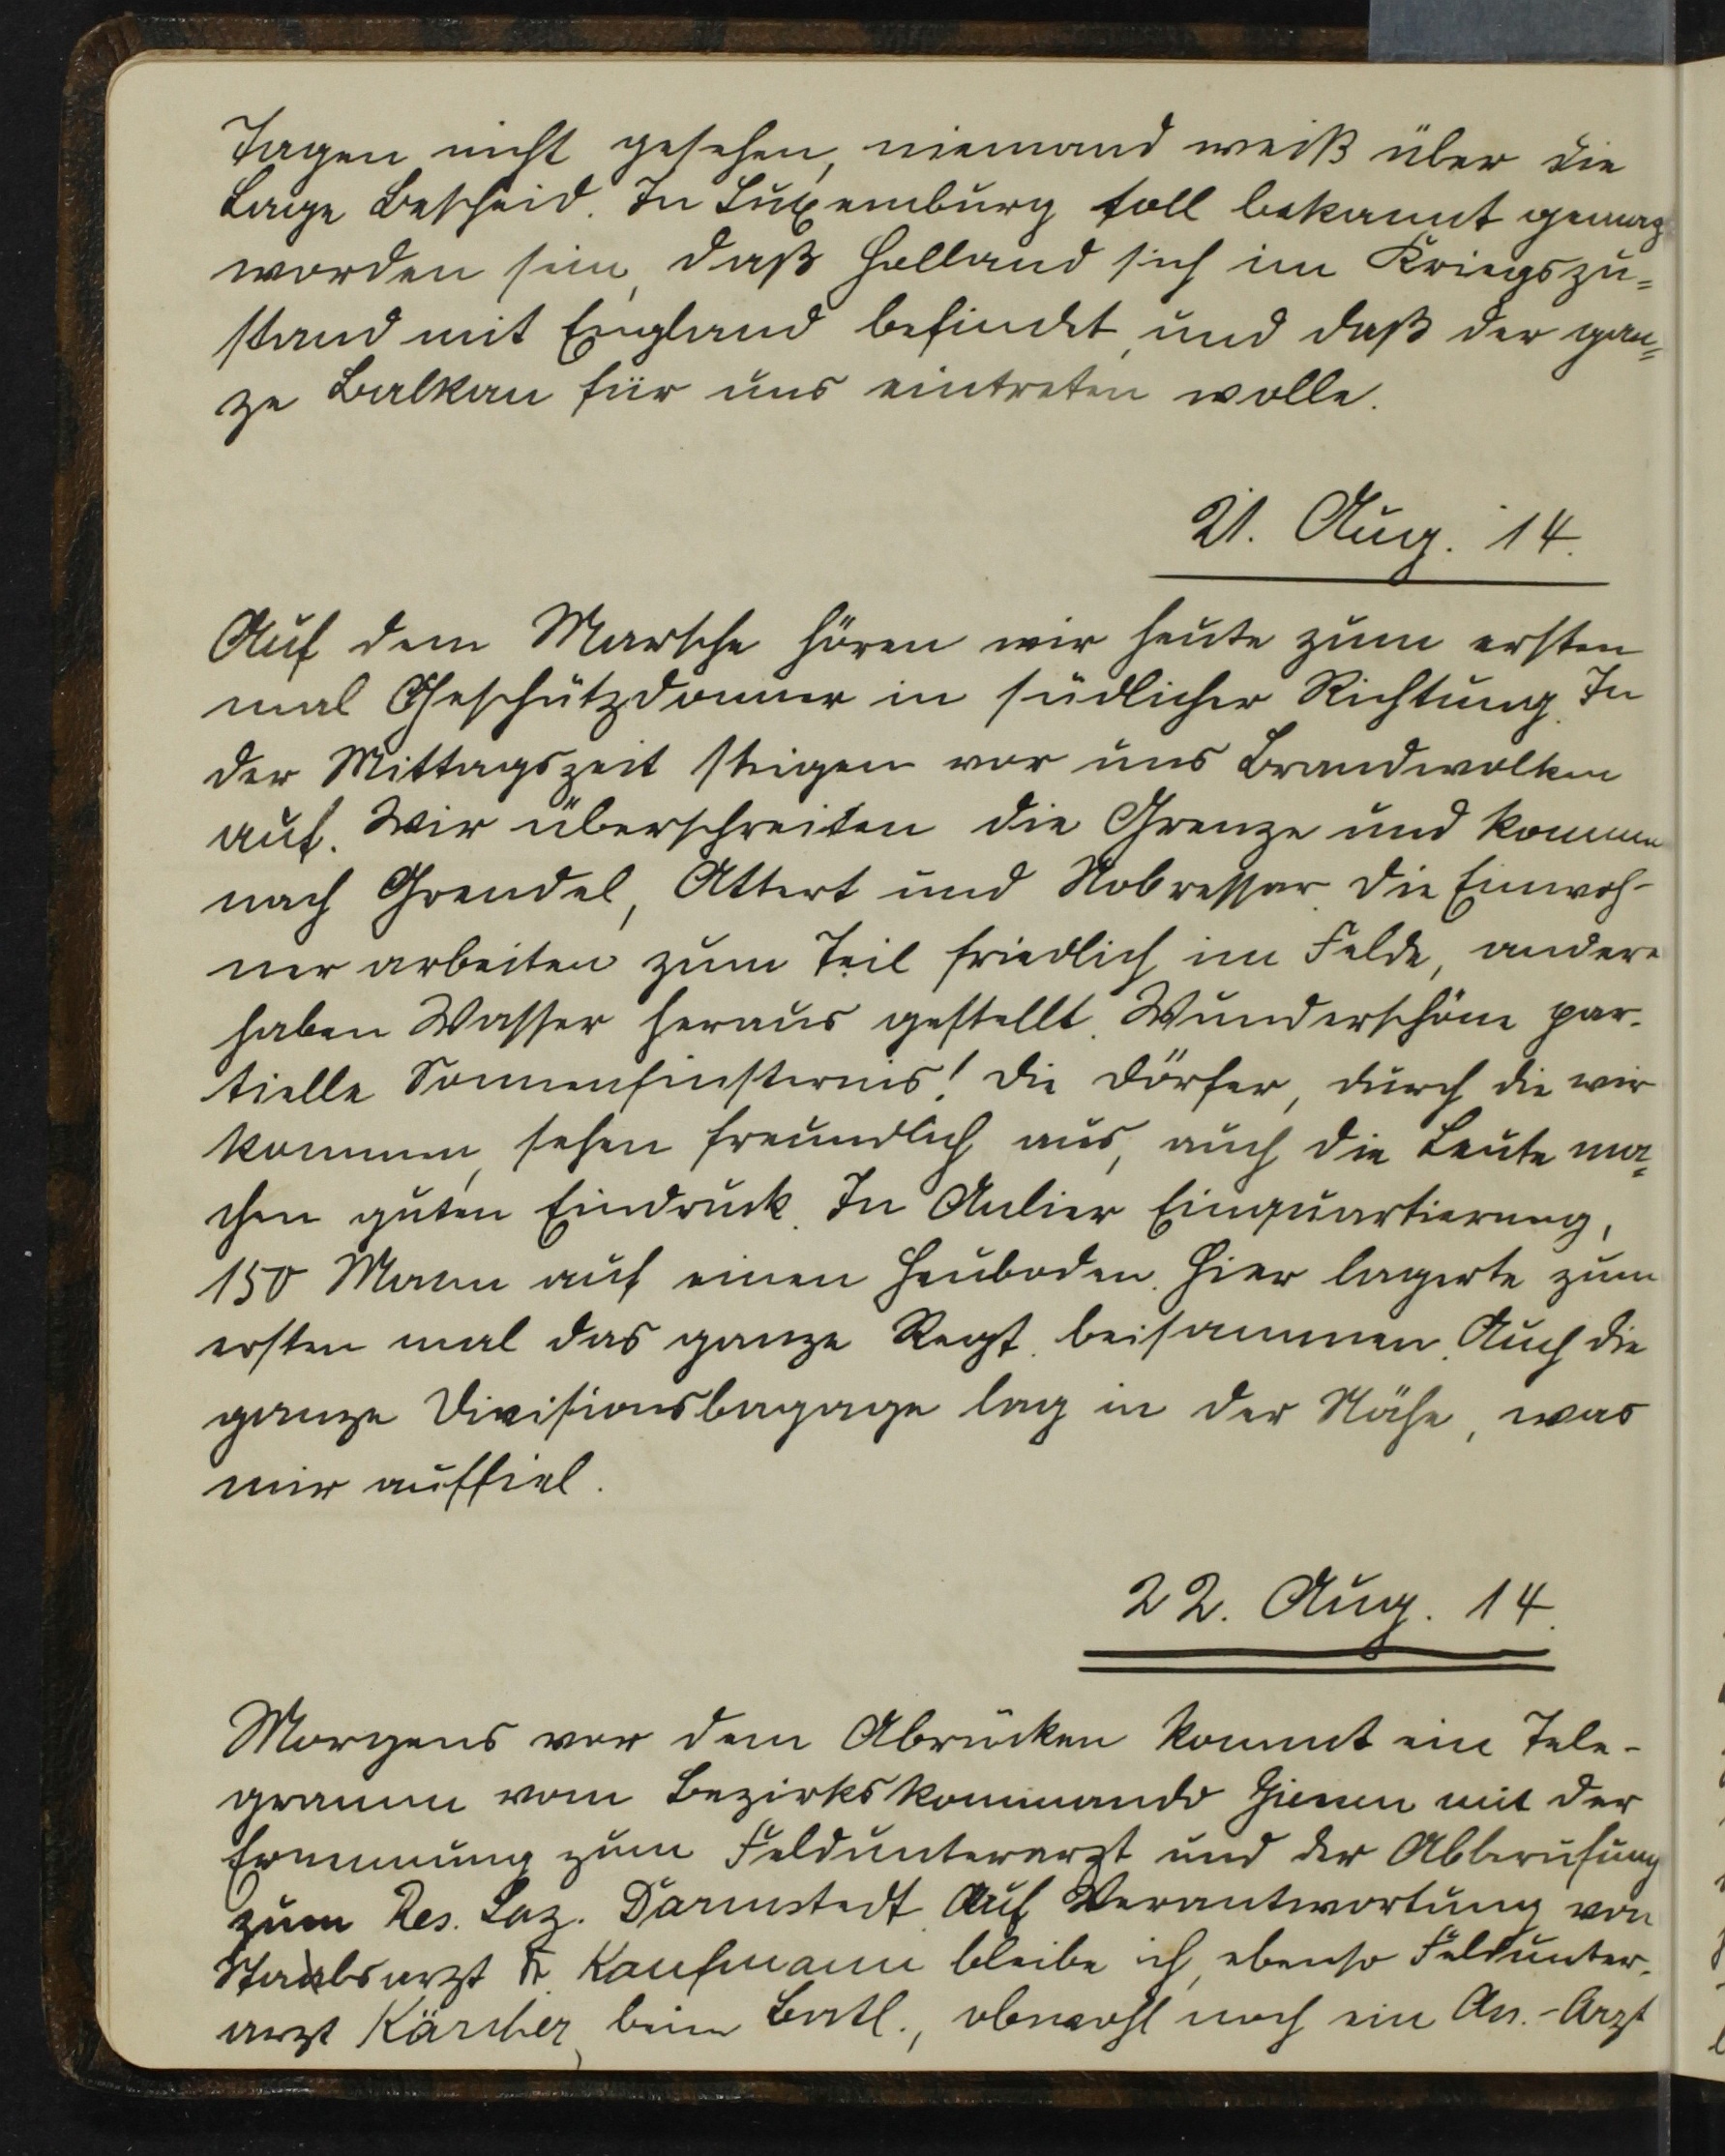 Tagen nicht gesehen, niemand weiß über die
Lage Bescheid. In Luxemburg soll bekannt gemac
worden sein, daß Holland sich im Kriegszu=
stand mit England befindet, und daß der gan=
ze Balkan für uns eintreten wolle.
21. Aug. 14.
Auf dem Marsche hören wir heute zum ersten
mal Geschützdonner in südlicher Richtung. In
der Mittagszeit steigen vor uns Brandwolken
auf. Wir überschreiten die Grenze und kommen
nach Grendel, Attert und Nobressar. Die Einwoh-
ner arbeiten zum Teil friedlich im Felde, andere
haben Wasser heraus gestellt. Wunderschöne par-
tielle Sonnenfinsternis! Die Dörfer, durch die wir
kommen, sehen freundlich aus, auch die Leute ma=
chen guten Eindruck. In Anlier Einquartierung,
150 Mann auf einen Heuboden. Hier lagerte zum
ersten mal das ganze Regt. beisammen. Auch die
ganze Divisionsbagage lag in der Nähe, was
mir auffiel.
22. Aug. 14.
Morgens vor dem Abrücken kommt ein Tele-
gramm vom Bezirkskommando Giessen mit der
Ernennung zum Feldunterarzt und der Abberufung
zum Res. Laz. Darmstadt. Auf Verantwortung von
Stabsarzt Dr. Kaufmann bleibe ich, ebenso Feldunter-
arzt Kärcher, beim Batl., obwohl noch ein Ass.-Arzt